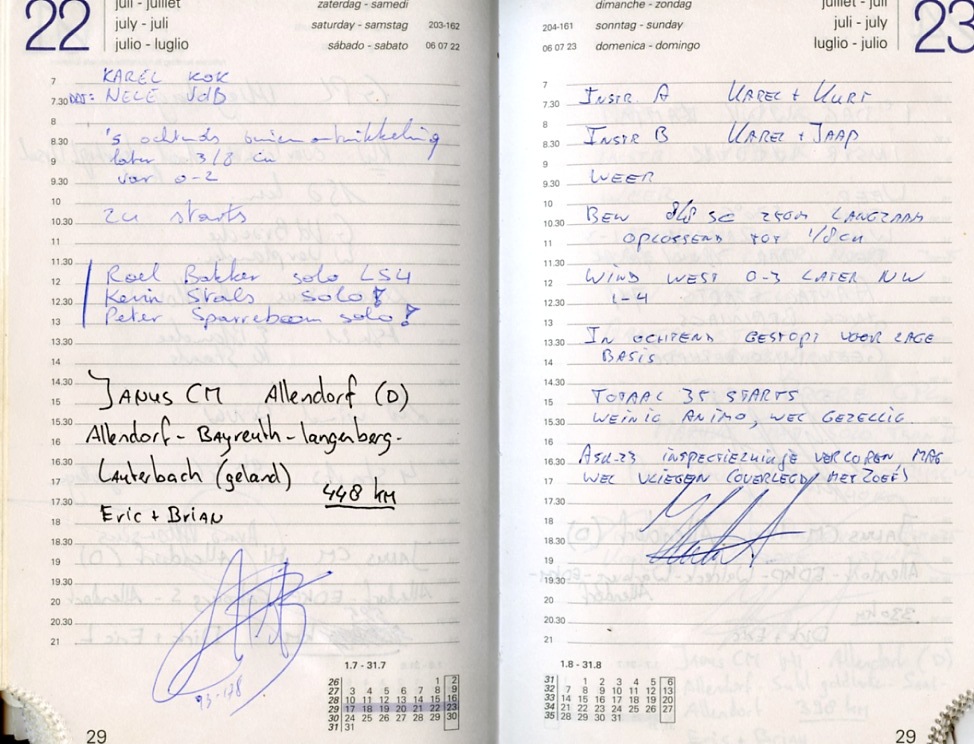 22
juli - juillet
july - juli
julio - luglio
zaterdag - samedi
saturday - samstag 203-162
sábado - sabato 06 07 22
7
7.30
8
8.30
9
9.30
10
10.30
11
11.30
12
12.30
13
13.30
14
14.30
15
15.30
16
16.30
17
17.30
18
18.30
19
19.30
20
20.30
21
KAREL KOK
DDT: NELE VdB
's ochtends buienontwikkeling
later 3/8 cu
var 0-2
24 starts
Roel Bakker solo LS4
Kevin Stals solo!
Peter Sparreboom solo!
JANUS CM Allendorf (D)
Allendorf - Bayreuth - Langenberg -
Lauterbach (geland)
448 km
Eric + BRIAN
1.7 - 31.7
26 1 2
27 3 4 5 6 7 8 9
28 10 11 12 13 14 15 16
29 17 18 19 20 21 22 23
30 24 25 26 27 28 29 30
31 31
29
23
dimanche - zondag
204-161 sonntag - sunday
06 07 23 domenica - domingo
juillet - juli
juli - july
luglio - julio
7
7.30
8
8.30
9
9.30
10
10.30
11
11.30
12
12.30
13
13.30
14
14.30
15
15.30
16
16.30
17
17.30
18
18.30
19
19.30
20
20.30
21
INSTR A KAREL + KURT
INSTR B KAREL + JAAP
WEER
BEW 8/8 SC 250M LANGZAAM
OPLOSSEND TOT 1/8 CU
WIND WEST 0-3 LATER NW
1-4
IN OCHTEND GESTOPT VOOR LAGE
BASIS
TOTAAL 35 STARTS
WEINIG ANIMO, WEL GEZELLIG
ASK-23 INSPECTIELUIKJE VERLOREN MAG
WEL VLIEGEN (OVERLEGD MET ZOEF)
1.8 - 31.8
31 1 2 3 4 5 6
32 7 8 9 10 11 12 13
33 14 15 16 17 18 19 20
34 21 22 23 24 25 26 27
35 28 29 30 31
29